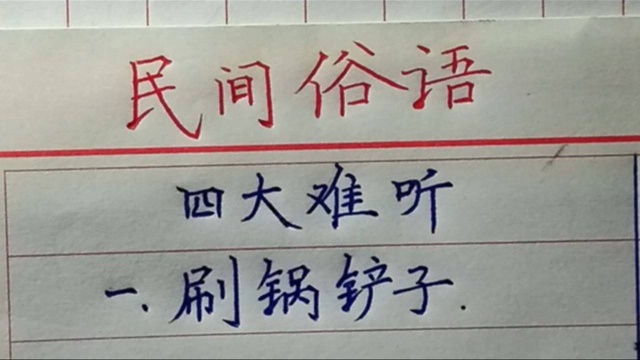 民间俗语
四大难听
一.刷锅铲子.